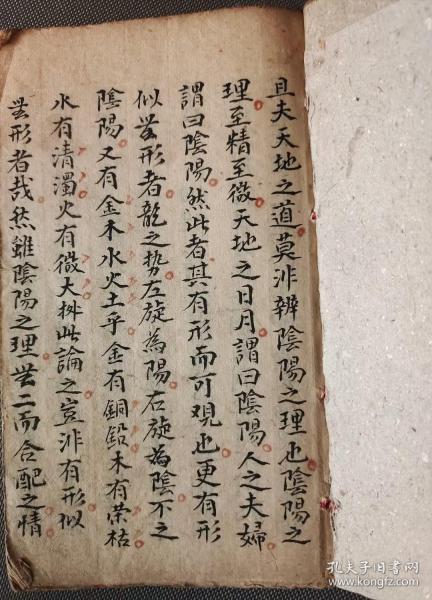 且夫天地之道莫非辨陰陽之理也陰陽之
理至精至微天地之日月謂曰陰陽人之夫婦
謂曰陰陽然此者其有形而可观也更有形
似無形者龍之势左旋為陽右旋為陰不之
陰陽又有金木水火土乎金有銅鉛木有荣枯
水有清濁火有微大拚此論之豈非有形似
無形者哉然雖陰陽之理無二而合配之情
孔夫子旧书网
www.kongfz.com